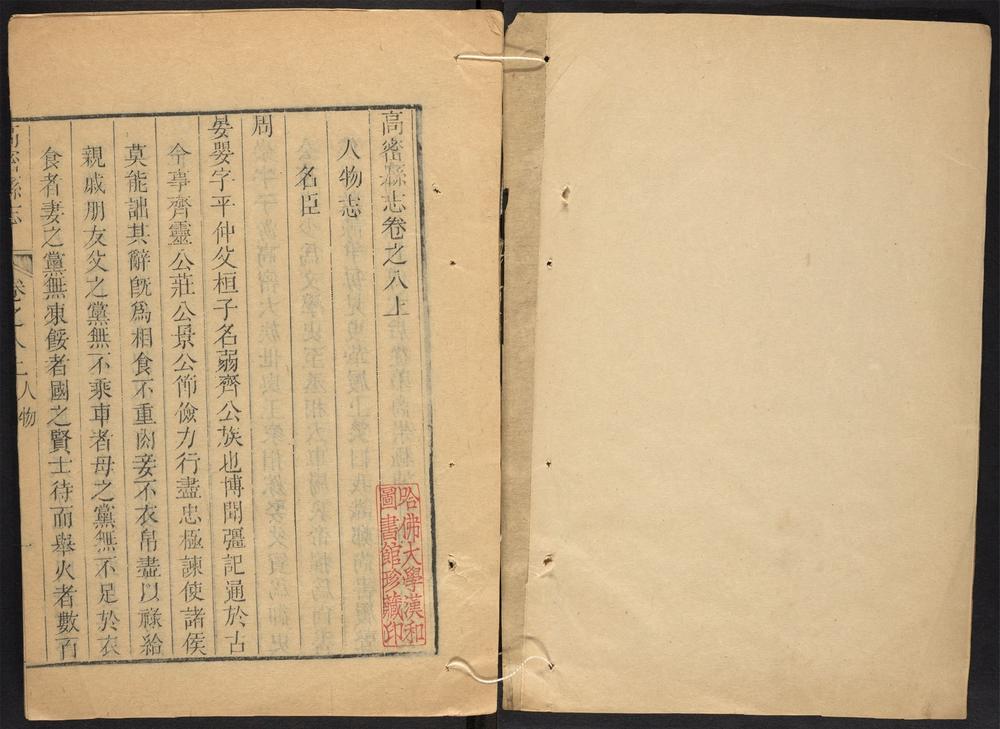 高密縣志卷之八上
人物志
名臣
周
晏嬰字平仲父桓子名弱齊公族也博聞彊記通於古
今事齊靈公莊公景公節儉力行盡忠極諫使諸侯
莫能詘其辭旣爲相食不重肉妾不衣帛盡以祿給
親戚朋友父之黨無不乘車者母之黨無不足於衣
食者妻之黨無凍餒者國之賢士待而舉火者數百
高密縣志
卷之八上
人物
一
哈佛大學漢和
圖書館珍藏印